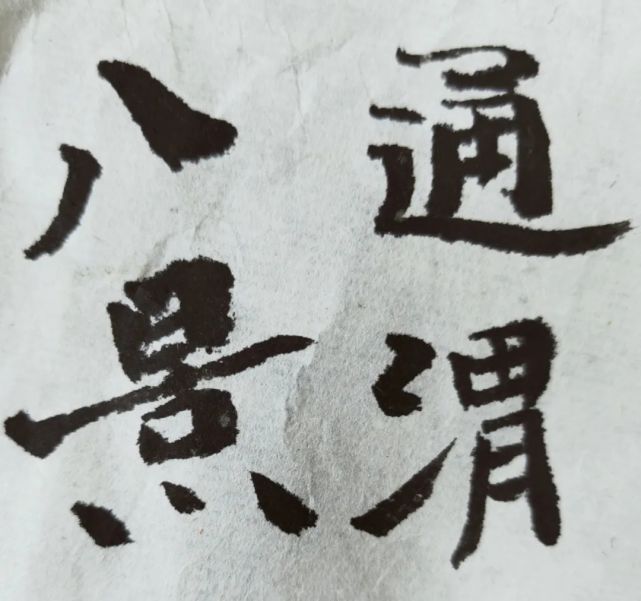 通渭
八景